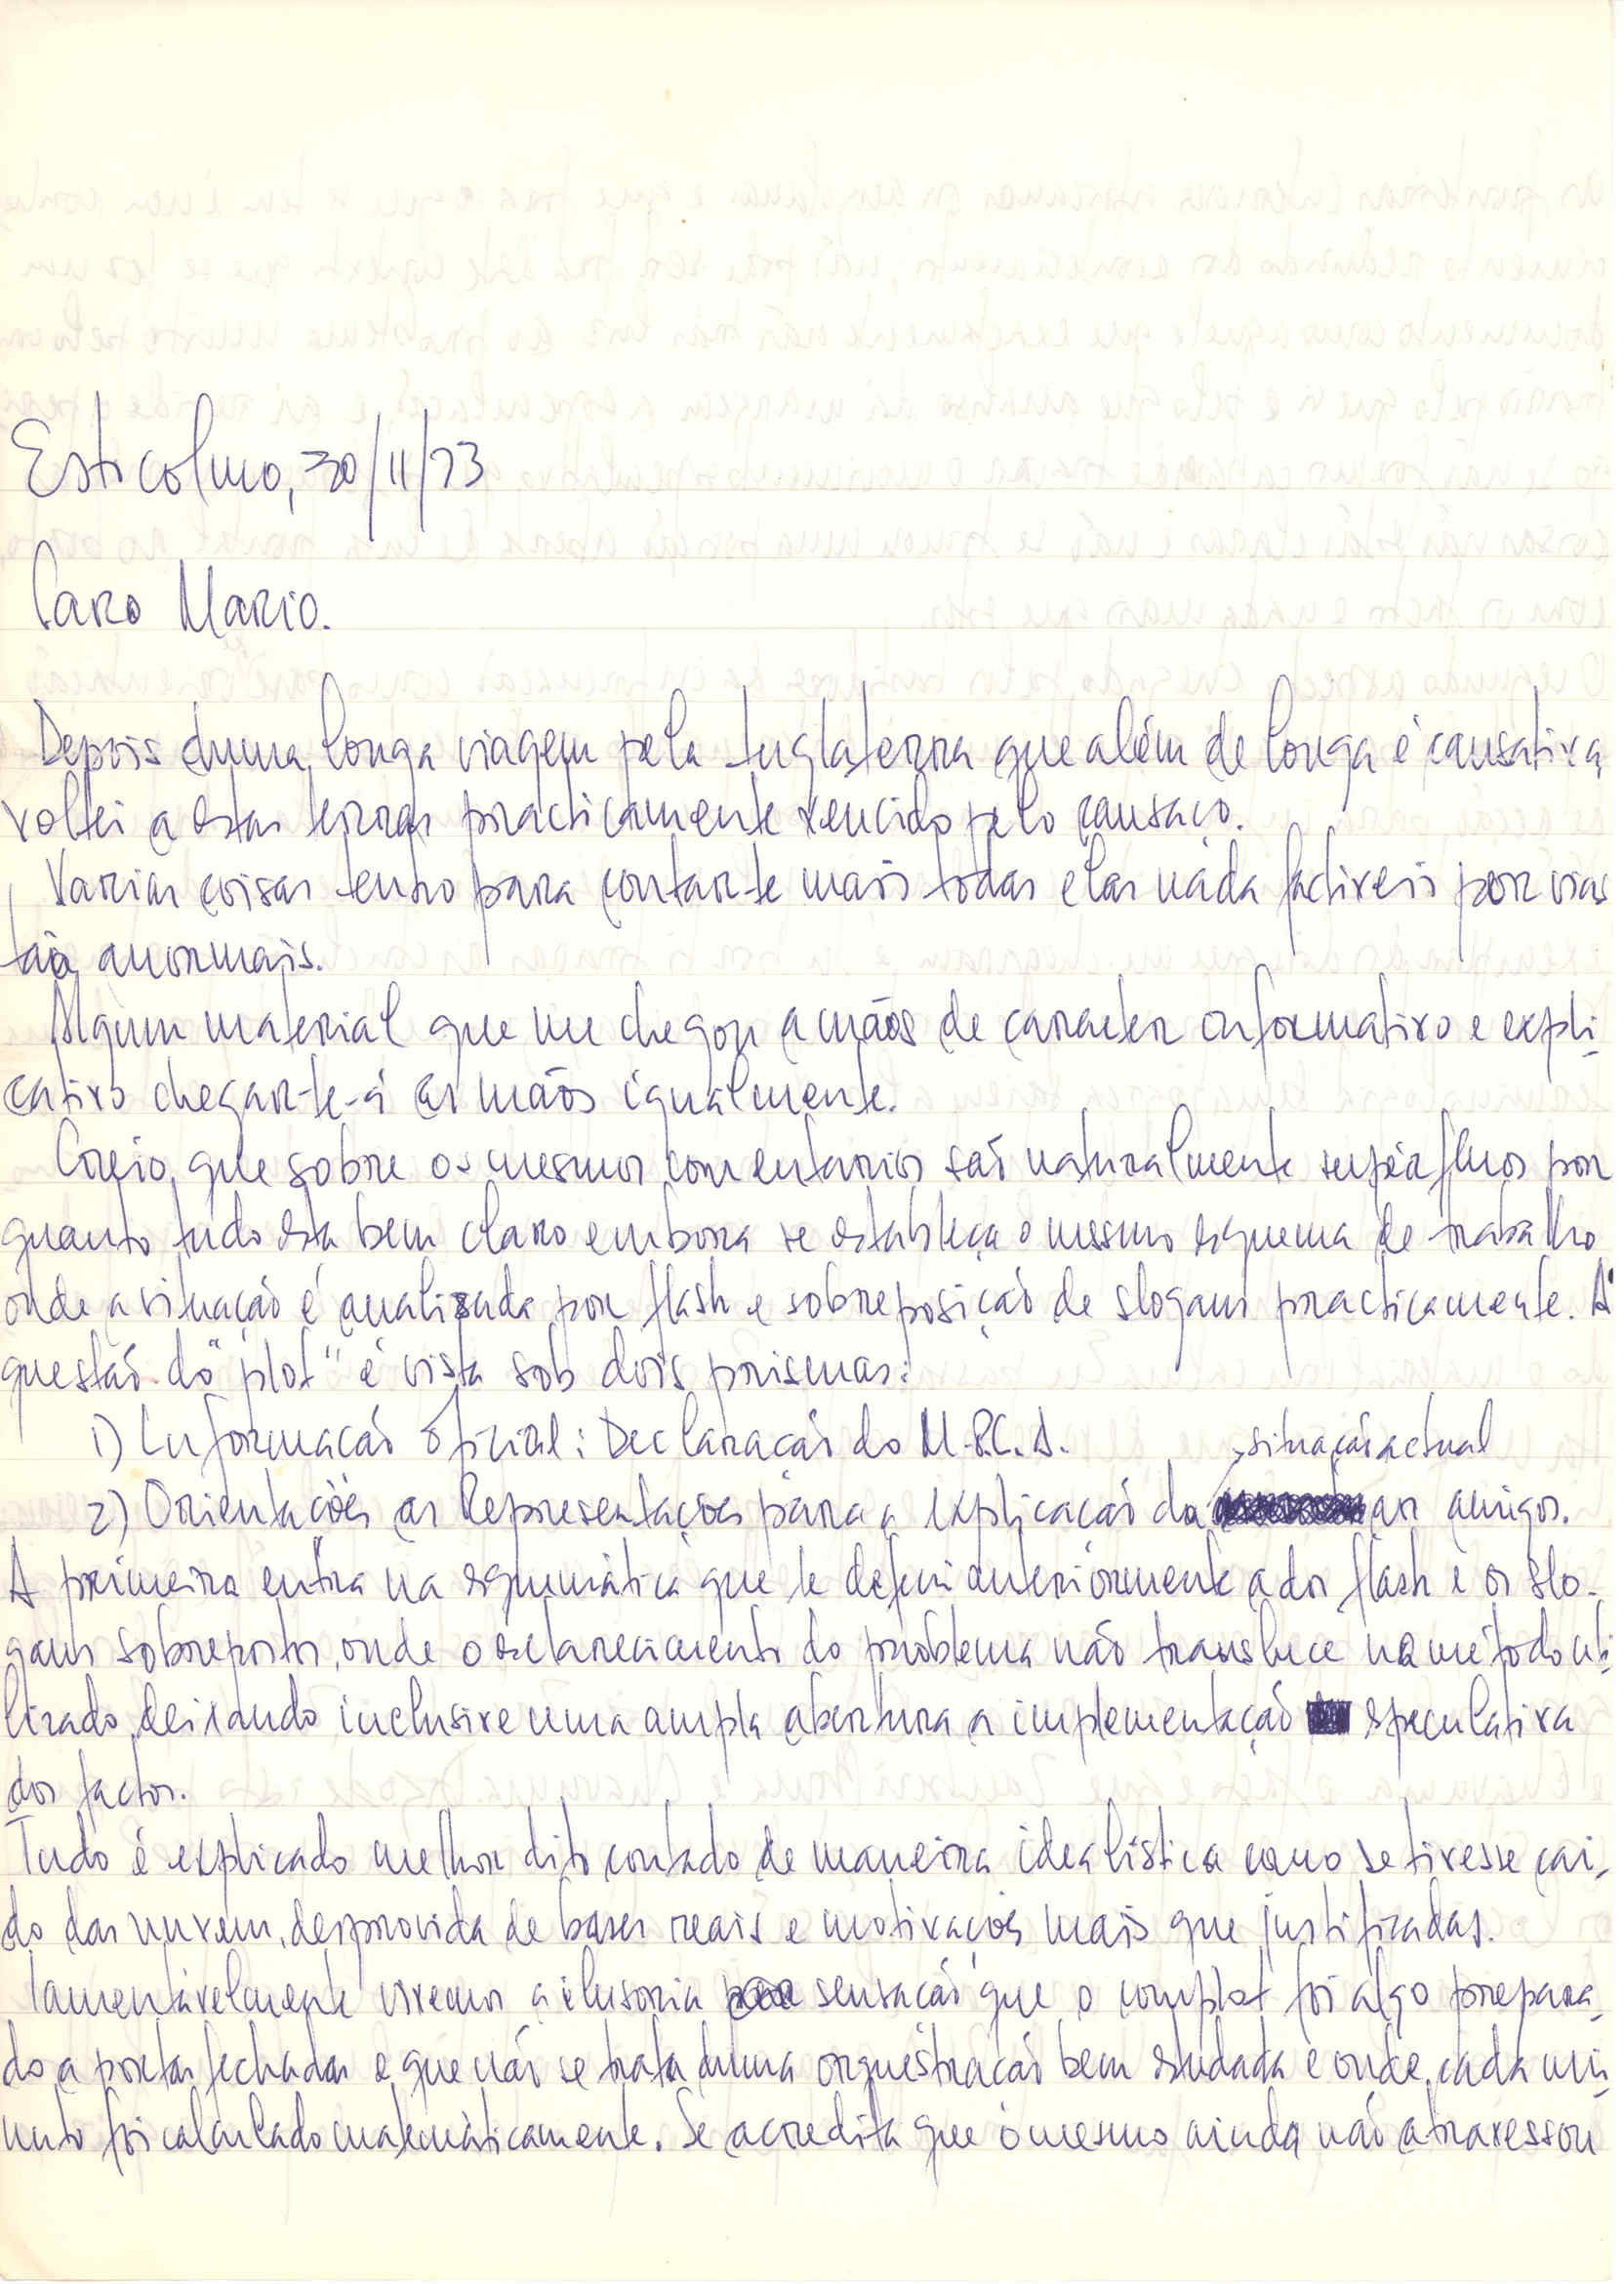 Estocolmo, 30/11/73
Caro Mario.
Depois duma longa viagem pela Inglaterra que além de longa é cansativa,
voltei a estas terras practicamente vencido pelo cansaço.
Varias coisas tenho para contar-te mais todas elas nada factiveis por vias
tão anormais.
Algum material que me chegou a mãos de caracter informativo e expli-
cativo chegar-te-á as mãos igualmente.
Creio que sobre os mesmos comentarios são naturalmente supérfluos por
quanto tudo esta bem claro embora se estableça o mesmo esquema de trabalho
onde a situação é analizada por flash e sobreposição de slogans practicamente. A
questão do "plot" é vista sob dois prismas:
1) Informação Oficial: Declaração do M.P.L.A.
situação actual
2) Orientações as Representações para a explicação da aos amigos.
A primeira entra na esquemática que te defini anteriormente a dos flash e os slo-
gans sobrepostos, onde o esclarecimento do problema não transluce no método uti-
lizado, deixando inclusive uma ampla abertura a implementação especulativa
dos factos.
Tudo é explicado melhor dito contado de maneira idealística como se tivesse cai-
do das nuvens, desprovida de bases reais e motivações mais que justificadas.
Lamentávelmente vivemos a ilusoria sensação que o complot foi algo prepara-
do a portas fechadas e que não se trata duma orquestração bem estudada e onde cada mi-
nuto foi calculado matemáticamente. Se acredita que o mesmo ainda não atravessou